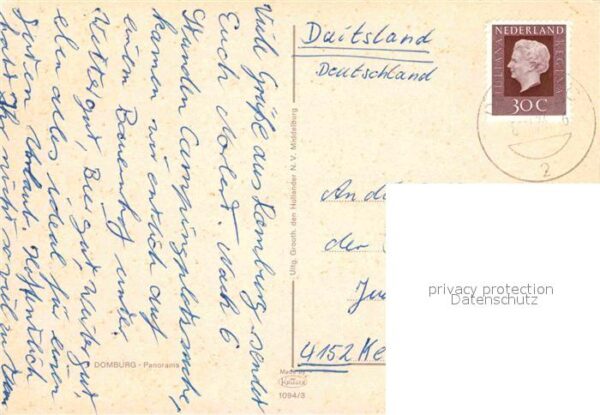 Viele Grüße aus Domburg sendet
Euch Norbert. Nach 6
Stunden Campingplatzsuche
kamen wir endlich auf
einem Bauernhof unter.
Wetter gut, Bier gut, Weiber gut,
eben alles ideal für einen
Urlaub. Hoffentlich
habt Ihr nicht zuviel zu tun
DOMBURG - Panorama
Uitg. Grooth. den Hollander N.V. Middelburg
Made by
1094/3
Duitsland
Deutschland
NEDERLAND
JULIANA REGINA
30 C
2
An di
der
Ju
4152 Ke
privacy protection
Datenschutz